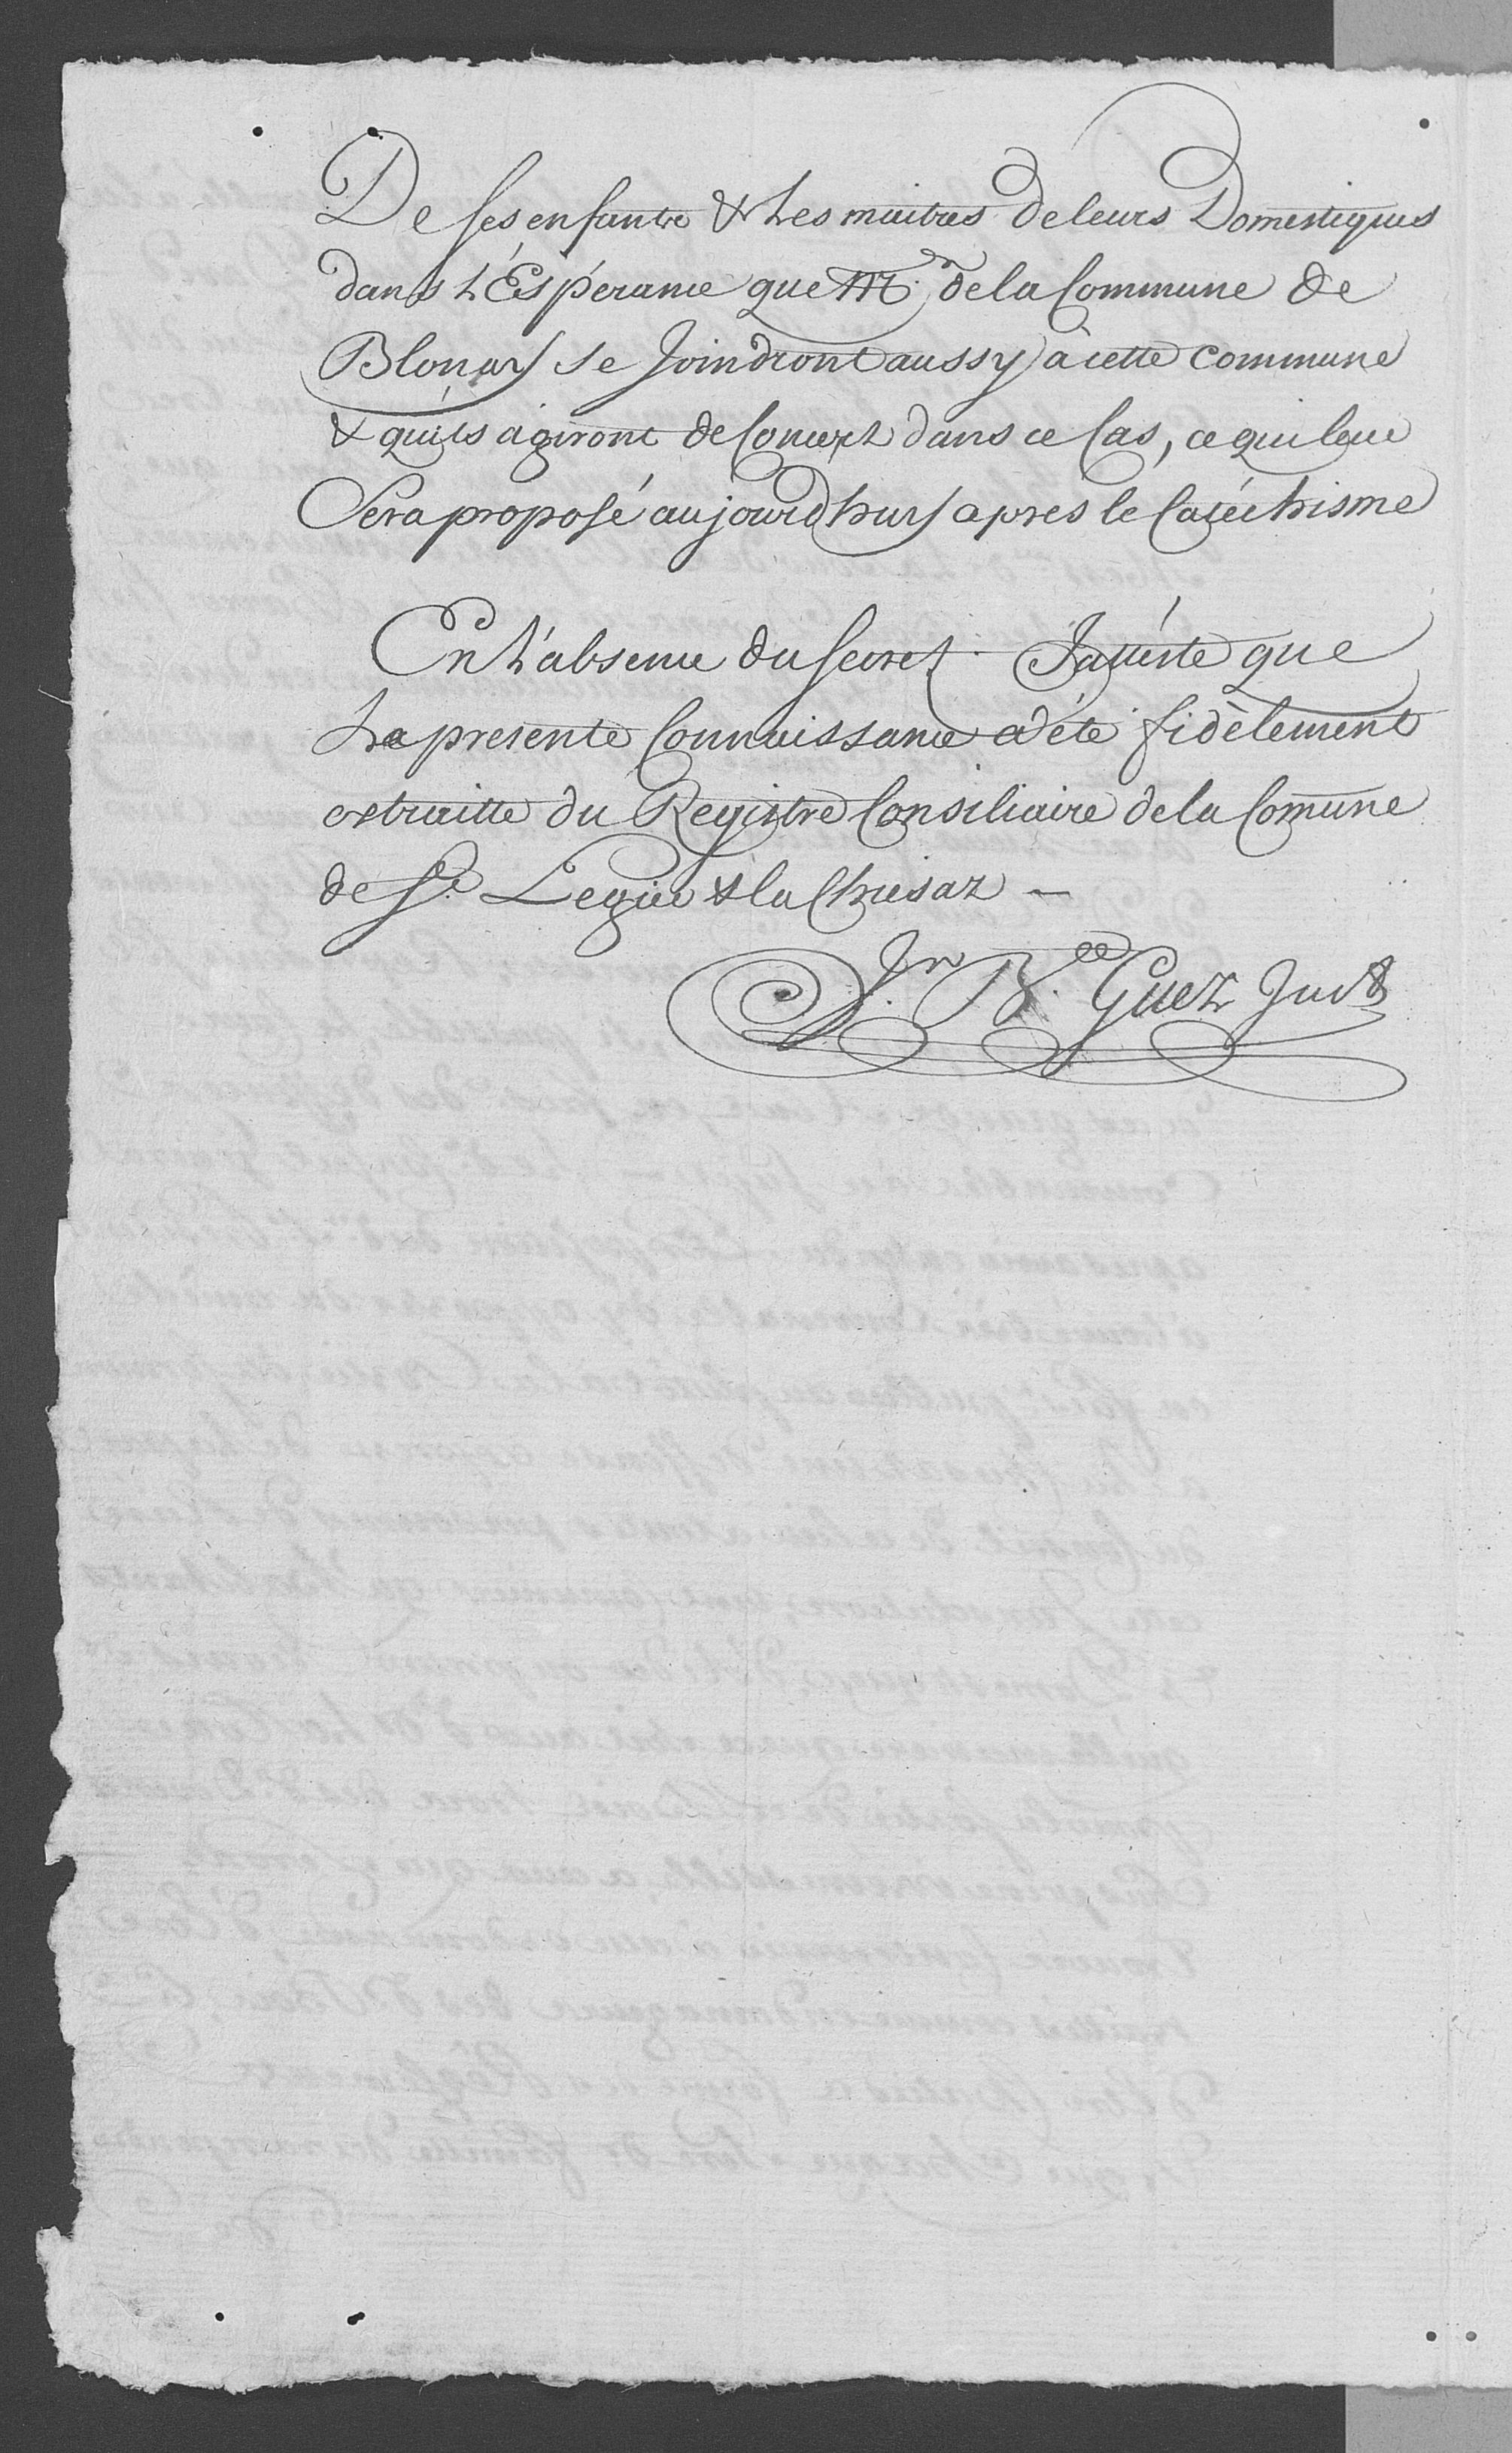 De ses enfants & Les maitres de leurs Domestiques
dans L'Espérance que Mrs. de la Commune de
Blonay se Joindront aussy à cette commune
& quils agiront de Concert dans ce Cas, ce qui leur
Sera proposé aujourdhuy apres le Catéchisme
En L'absence du Secret. J'atteste que
La presente Connaissance a été fidèlement
extraitte du Registre Consiliaire de la Comune
de St. Legier & la Chiesaz —
Jn. Bce. Guex Just